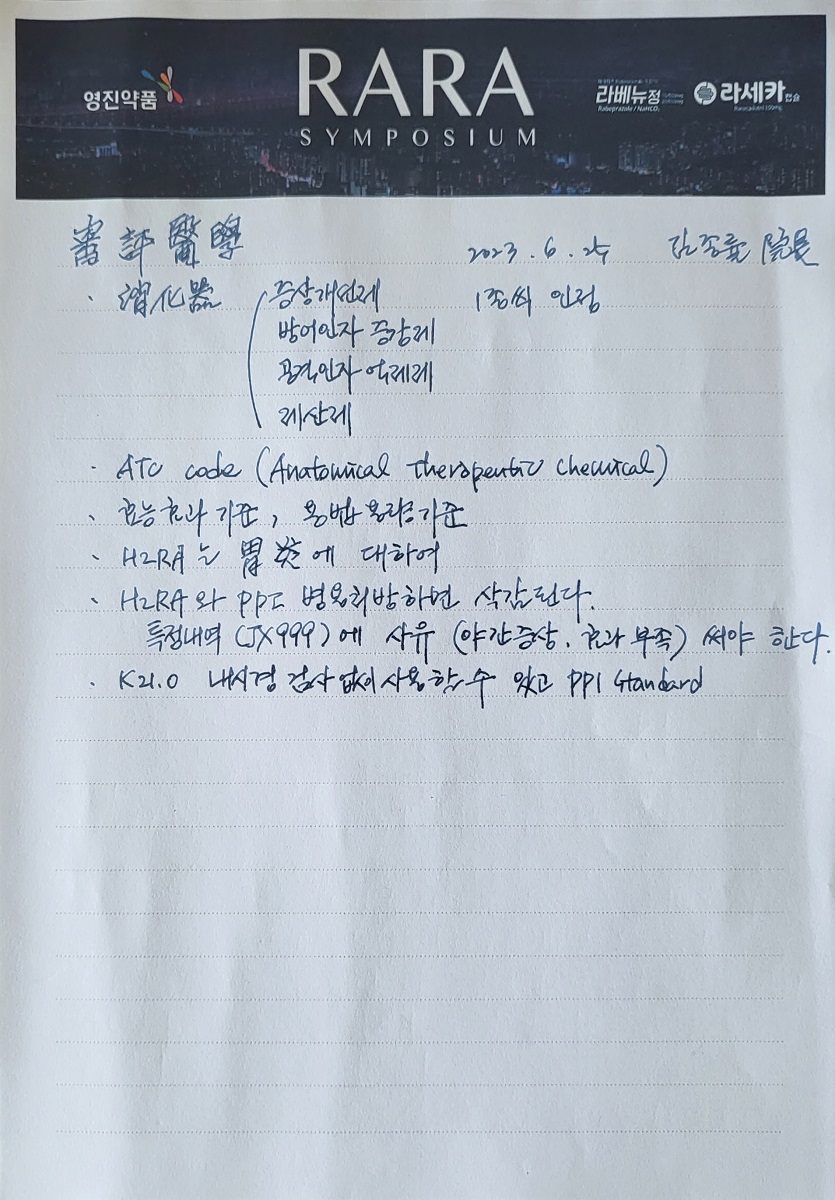 영진약품
RARA
SYMPOSIUM
라베뉴정
Rabeprazole / NaHCO₃
라세카 캡슐
Racecadotril 100mg
審評醫學 2023. 6. 25 김종률 院長
· 消化器 증상개선제 1종씩 인정
방어인자 증강제
공격인자 억제제
제산제
· ATC code (Anatomical therapeutic chemical)
· 효능효과 기준, 용법용량기준
· H2RA는 胃炎에 대하여
· H2RA와 PPI 병용처방하면 삭감된다.
특정내역 (JX999)에 사유 (야간증상, 효과 부족) 써야 한다.
· K21.0 내시경 검사 없이 사용할 수 있고 PPI Standard